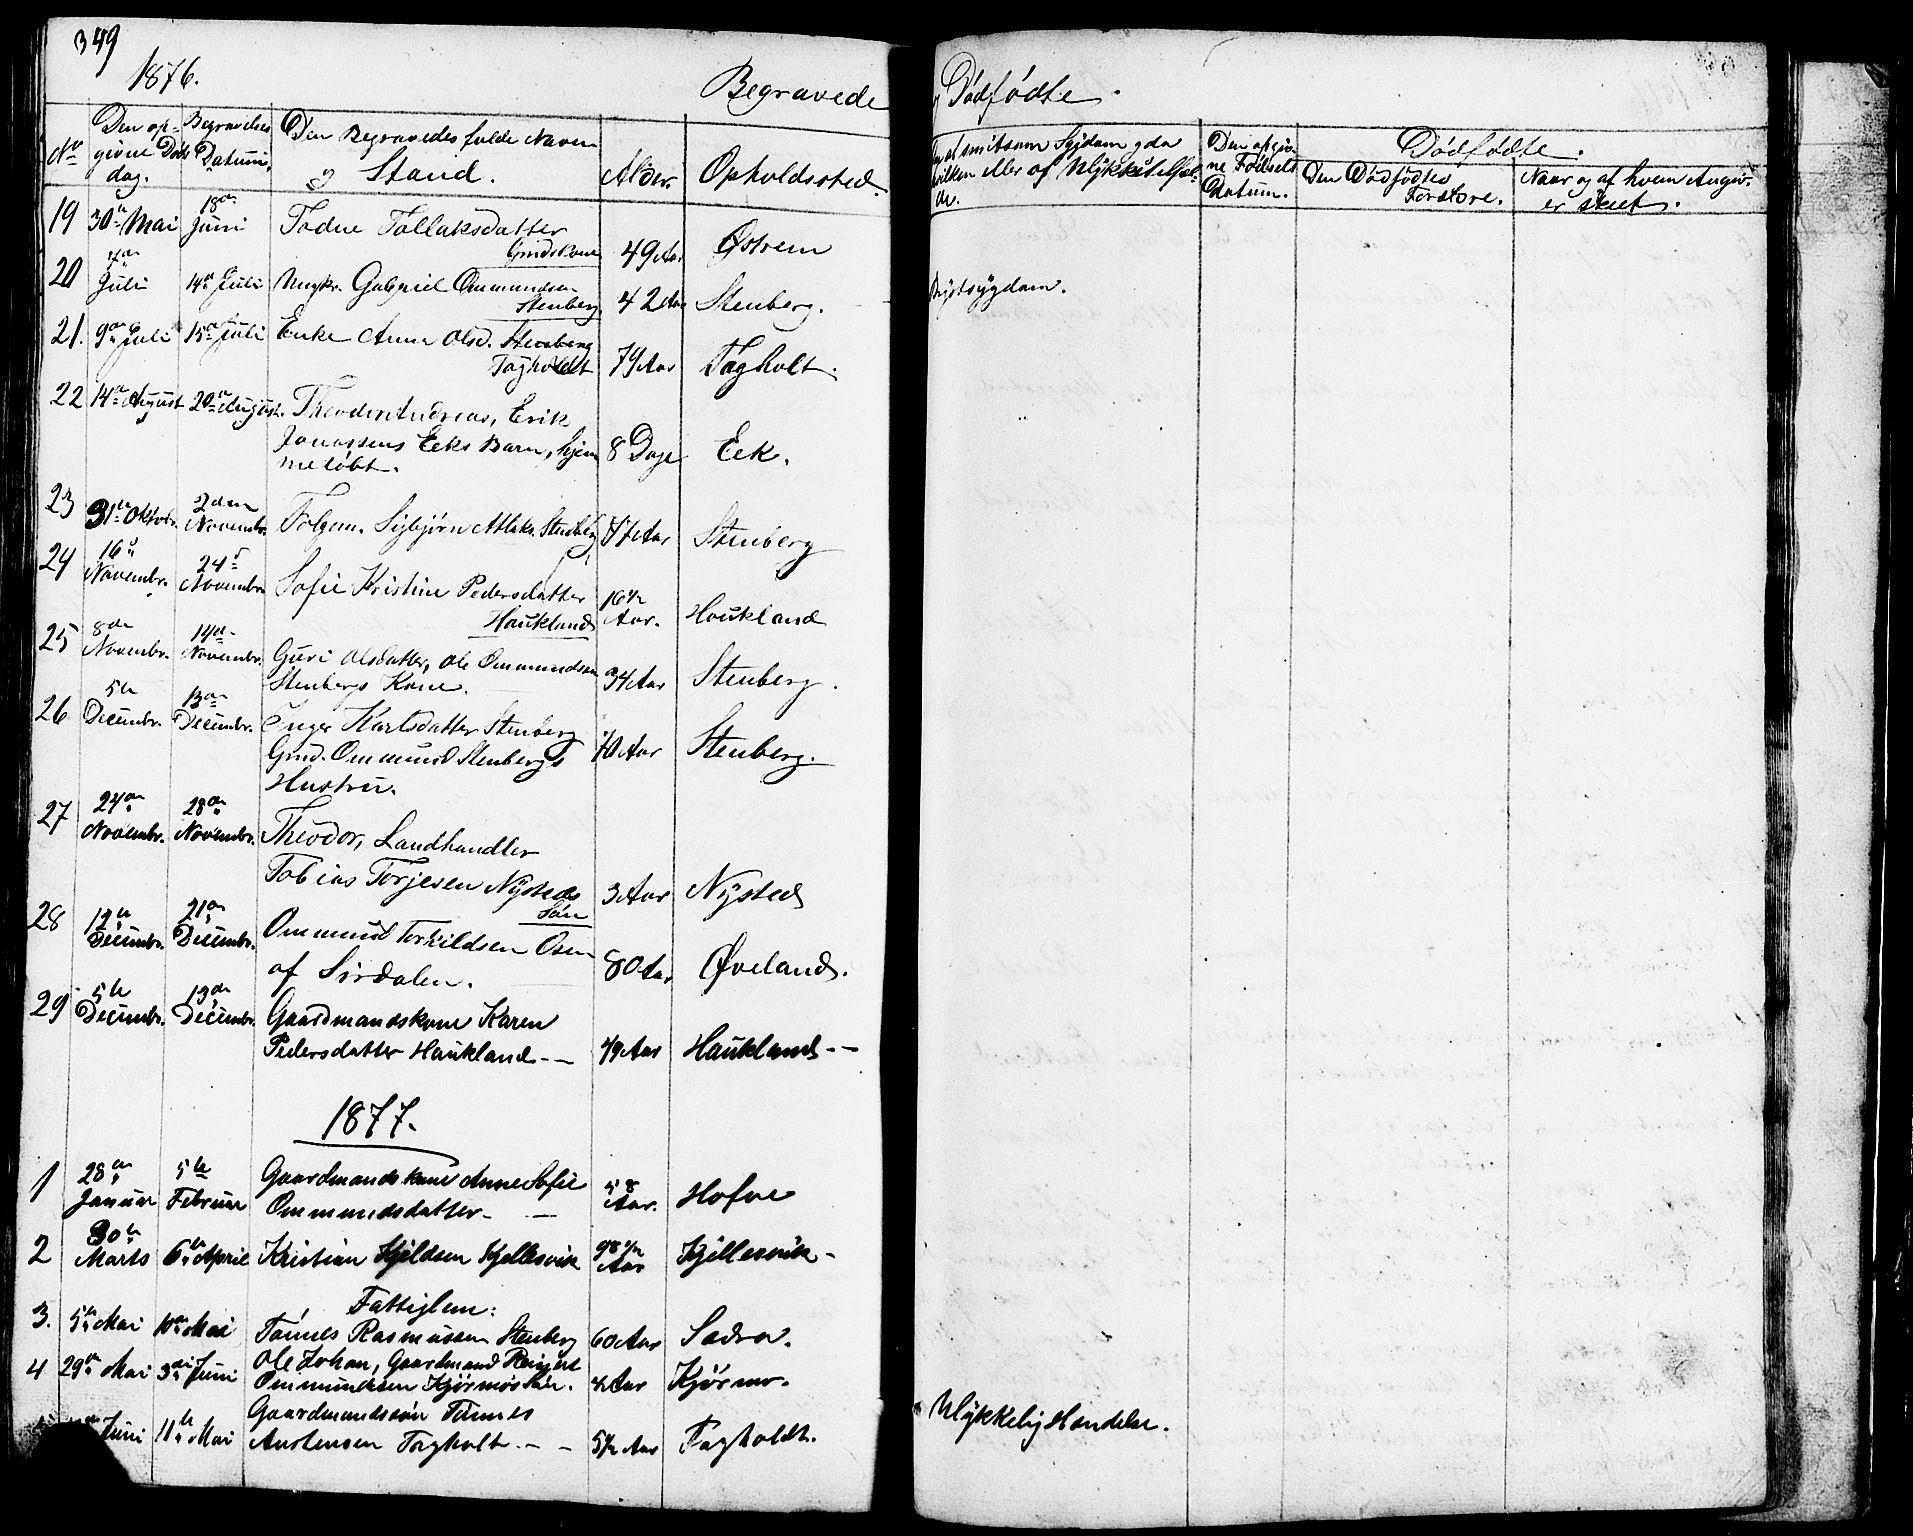 349
1876.
Begravede
Dødfødte.
No
Den opgivne Døds dag.
Begravelses Datum.
Den Begravedes fulde Navn og Stand.
Alder.
Opholdssted.
smitsom Sygdom
eller af Ulykkestilfælde.
Den opgivne Fødsels Datum.
Dødfødte.
Den Dødfødtes Forældre.
Naar og af hvem Angiv. er skeet.
19 30te Mai 18de Juni Todne Tollaksdatter
Grdskone 49 Aar Østrem
20 7de Juli 14de Juli Ungkr. Gabriel Ommundsen
Stenberg 42 Aar Stenberg. Brystsygdom.
21. 9de Juli 15de Juli Enke Anna Olsd. Stenberg
Tagholdt 79 Aar Tagholt.
22 14de August 20de August. Theodor Andreas, Erik
Jonassens Eeks Barn, hjem
medøbt. 8 Dage Eek.
23 31te Oktobr. 2den Novembr. Folgem. Sigbjørn Atlaks. Stenberg 77 Aar Stenberg
24 16de Novembr. 24de Novembr. Sofie Kristine Pedersdatter
Haukland 16 1/2 Aar. Houkland
25 8de Novembr. 14de Novembr. Guri Olsdatter, Ole Ommundsen
Stenbergs Kone. 34 Aar Stenberg.
26 5te Decembr. 13de Decembr. Inger Karlsdatter Stenberg
Grmd. Ommund Stenbergs
Hustru. 70 Aar Stenberg.
27 24de Novembr. 28de Novembr. Theodor, Landhandler
Tobias Torjesen Nysteds
Søn 3 Aar Nysted
28 12te Decembr. 21de Decembr. Ommund Terkildsen Osen
af Sirdalen. 80 Aar Øveland.
29 5te Decembr. 13de Decembr. Gaardmandskone Karen
Pedersdatter Haukland -- 49 Aar Haukland --
1877.
1 28de Januar 5te Februar Gaardmandskone Anne Sofie
Ommundsdatter - 58 Aar. Hofve
2 30te Marts 6te April Kristian Kjeldsen Kjellesvik Aar Kjellesvik -
3. 5te Mai 10de Mai Fattiglem:
Tønnes Rasmussen Stenberg 60 Aar Sædra.
4 29de Mai 3die Juni Ole Johan, Gaardmand Reinert
Ommundsen Kjørmos Søn. Aar Kjørmo.
Juni 11te Mai Gaardmandssøn Tønnes
Austensen Tagholt. - - 5 1/2 Aar Tagholdt. Ulykkelig Hændelse.